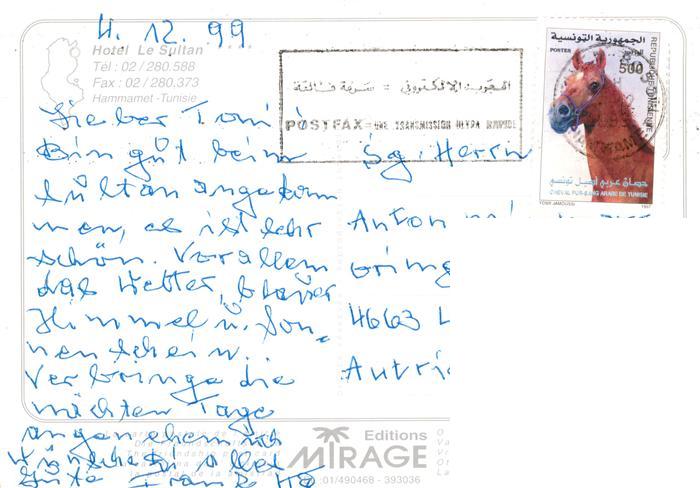 4.12.99
Hotel Le Sultan
Tél : 02 / 280.588
Fax : 02 / 280.373
Hammamet - Tunisie
البريد الإلكتروني = سرعة فائقة
POSTFAX = UNE TRANSMISSION ULTRA RAPIDE
الجمهورية التونسية
POSTES
البريد
500
REPUBLIQUE TUNISIENNE
حصان عربي أصيل تونسي
CHEVAL PUR-SANG ARABE DE TUNISIE
1997
Lieber Toni!
Bin gut beim
Sultan angekom
men, es ist sehr
schön. Vor allem
das Wetter, blauer
Himmel u. Son-
nenschein.
Verbringe die
nächsten Tage
angenehm ich
wünsche dir alles
Gute Franz
Sg. Herrn
Anton
4663 L
Autri
Editions
MIRAGE
01/490468 - 393036